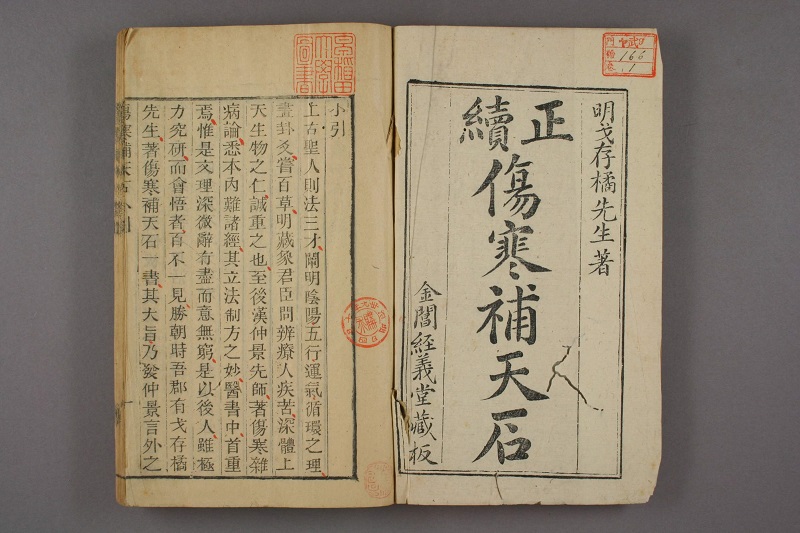 明戈存橘先生著
正續
傷寒補天石
金閶經義堂藏板
166
1
小引
上古聖人則法三才闡明陰陽五行運氣循環之理
畫卦爻嘗百草明藏象君臣問辨療人疾苦深體上
天生物之仁誠重之也至後漢仲景先師著傷寒雜
病論悉本內難諸經其立法制方之妙醫書中首重
焉惟是文理深微辭有盡而意無窮是以後人雖極
力究研而會悟者百不一見勝朝時吾郡有戈存橘
先生著傷寒補天石一書其大旨乃發仲景言外之
傷寒補天石 小引